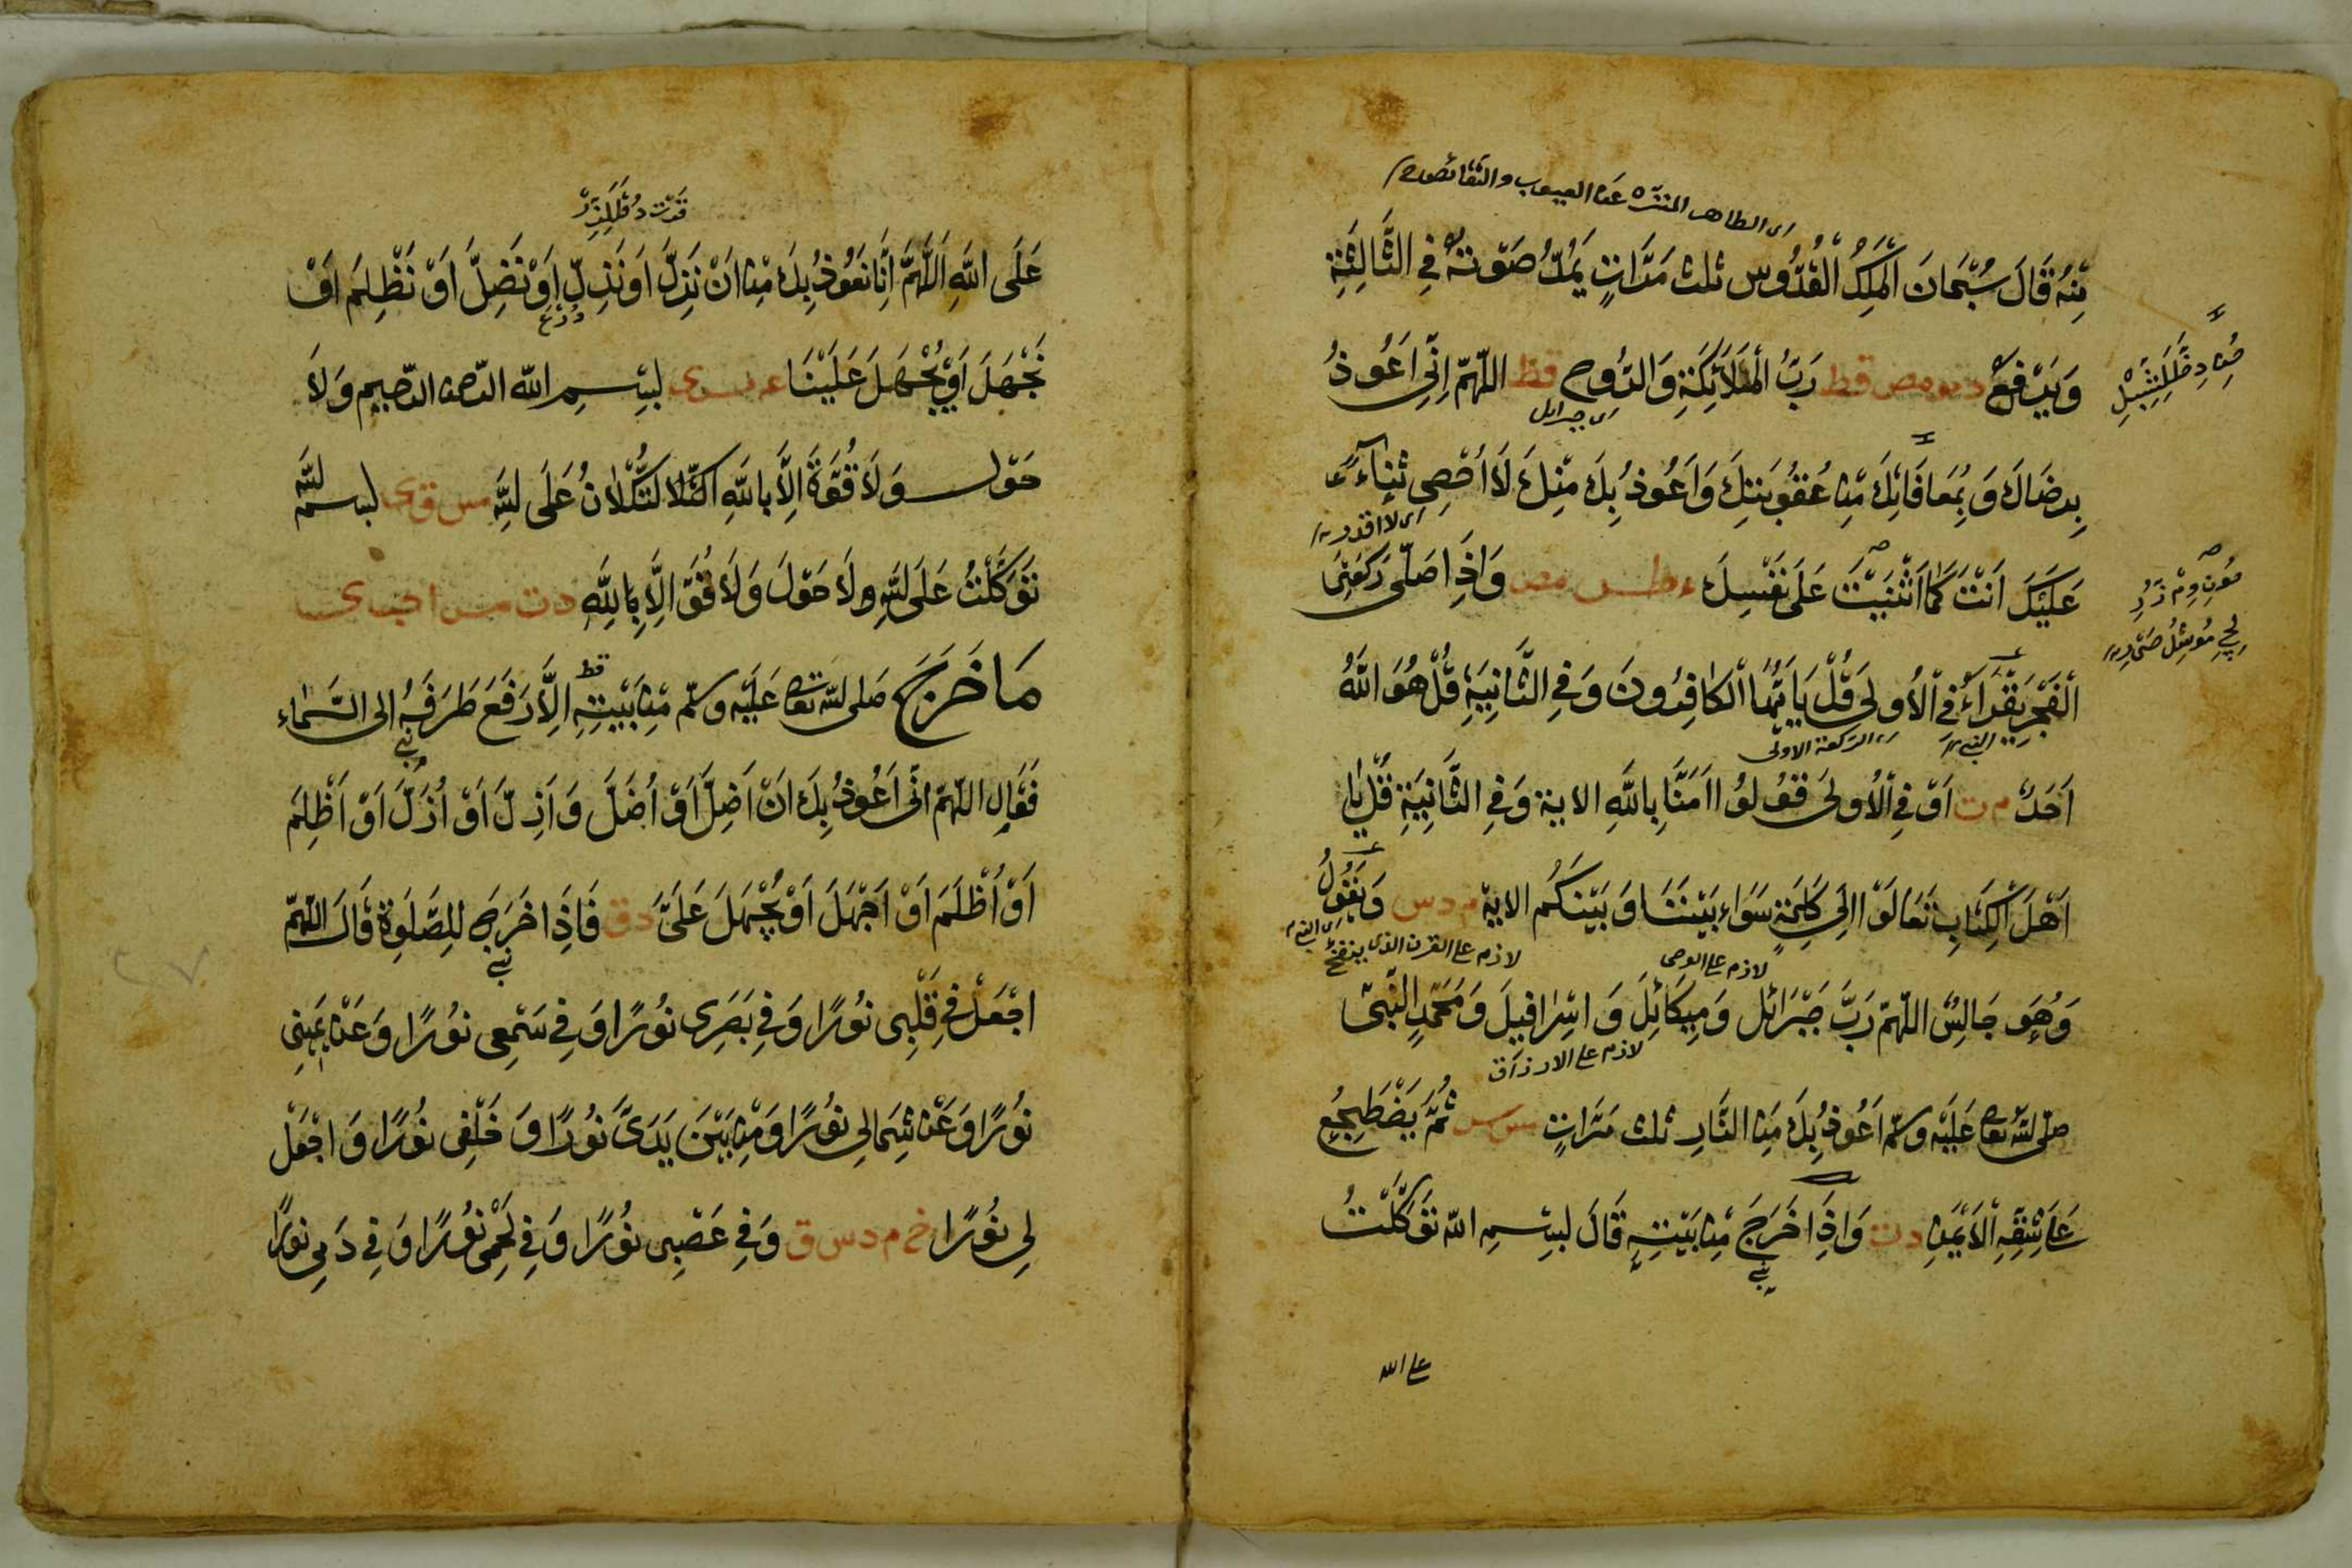 ای الطاهر المنزه عن العیوب والنقائص
مِنْهُ قَالَ سُبْحَانَ الْمَلِكِ الْقُدُّوسِ ثلث مَرَّاتٍ يَمُدُّ صَوْتَهُ فِي الثَّالِثَةِ
وَيَرْفَعُ د س مص قط رَبُّ الْمَلَائِكَةِ وَالرُّوحِ قط اللّهمّ اِنِّي اَعُوذُ
ای جبرایل
بِرِضَاكَ وَبِمُعَافَاتِكَ مِنْ عُقُوبَتِكَ وَاَعُوذُ بِكَ مِنْكَ لَا اُحْصِي ثَنَاءً
ای لا اقدر
عَلَيْكَ اَنْتَ كَمَا اَثْنَيْتَ عَلَى نَفْسِكَ ء طس مص وَاِذَا صَلَّى رَكْعَتَيِ
الْفَجْرِ يَقْرَاءُ فِي الْاُولَى قُلْ يَا اَيُّهَا الْكَافِرُونَ وَفِي الثَّانِيَةِ قُلْ هُوَ اللّٰهُ
النبي ای الركعة الاولى
اَحَدٌ م ت اَوْ فِي الْاُولَى قُولُوا اٰمَنَّا بِاللّٰهِ الاية وَفِي الثَّانِيَةِ قُلْ يَا
اَهْلَ الْكِتَابِ تَعَالَوْا اِلَى كَلِمَةٍ سَوَاءٍ بَيْنَنَا وَبَيْنَكُمْ الاية م د س وَيَقُولُ
ای النبي
لازم على الوحی لازم على القرن الذی ینفخ
وَهُوَ جَالِسٌ اللّهمّ رَبَّ جَبْرَائِلَ وَمِيكَائِلَ وَاِسْرَافِيلَ وَمُحَمَّدٍ النَّبِيِّ
لازم على الارزاق
صلى الله تعا عَلَيْهِ وسلم اَعُوذُ بِكَ مِنَ النَّارِ ثلث مَرَّاتٍ مس ثُمَّ يَضْطَجِعُ
عَلَى شِقِّهِ الْاَيْمَنِ د ت وَاِذَا خَرَجَ مِنْ بَيْتِهِ قَالَ بِسْمِ اللّٰه تَوَكَّلْتُ
نبی
على الله
عَلَى اللّٰهِ اَللّٰهُمَّ اِنَّا نَعُوذُ بِكَ مِنْ اَنْ نَزِلَّ اَوْ نُذِلَّ اَوْ نَضِلَّ اَوْ نَظْلِمَ اَوْ
نَجْهَلَ اَوْ يُجْهَلَ عَلَيْنَا عه مس ى بسم اللّٰه الرّحمن الرّحيم وَلَا
حَوْلَ وَلَا قُوَّةَ اِلَّا بِاللّٰهِ التُّكْلَانُ عَلَى اللّٰهِ مس ق ى بسم اللّٰه
تَوَكَّلْتُ عَلَى اللّٰهِ ولَا حَوْلَ وَلَا قُوَّةَ اِلَّا بِاللّٰهِ د ت س حب ى
مَا خَرَجَ صلى الله تعا عَلَيْهِ وسلّم مِنْ بَيْتِهِ قط اِلَّا رَفَعَ طَرْفَهُ الى السَّمَاء
نبی
فَقَالَ اللّهمّ اِنِّي اَعُوذُ بِكَ اَنْ اَضِلَّ اَوْ اُضَلَّ وَاَزِلَّ اَوْ اُزَلَّ اَوْ اَظْلِمَ
اَوْ اُظْلَمَ اَوْ اَجْهَلَ اَوْ يُجْهَلَ عَلَيَّ د ق فَاِذَا خَرَجَ لِلصَّلٰوةِ قَالَ اللّهمّ
نبی
اجْعَلْ فِي قَلْبِي نُورًا وَفِي بَصَرِي نُورًا وَفِي سَمْعِي نُورًا وَعَنْ يَمِينِي
نُورًا وَعَنْ شِمَالِي نُورًا وَمِنْ بَيْنَ يَدَيَّ نُورًا وَخَلْفِي نُورًا وَاجْعَلْ
لِي نُورًا خ م د س ق وَفِي عَصَبِي نُورًا وَفِي لَحْمِي نُورًا وَفِي دَمِي نُورًا